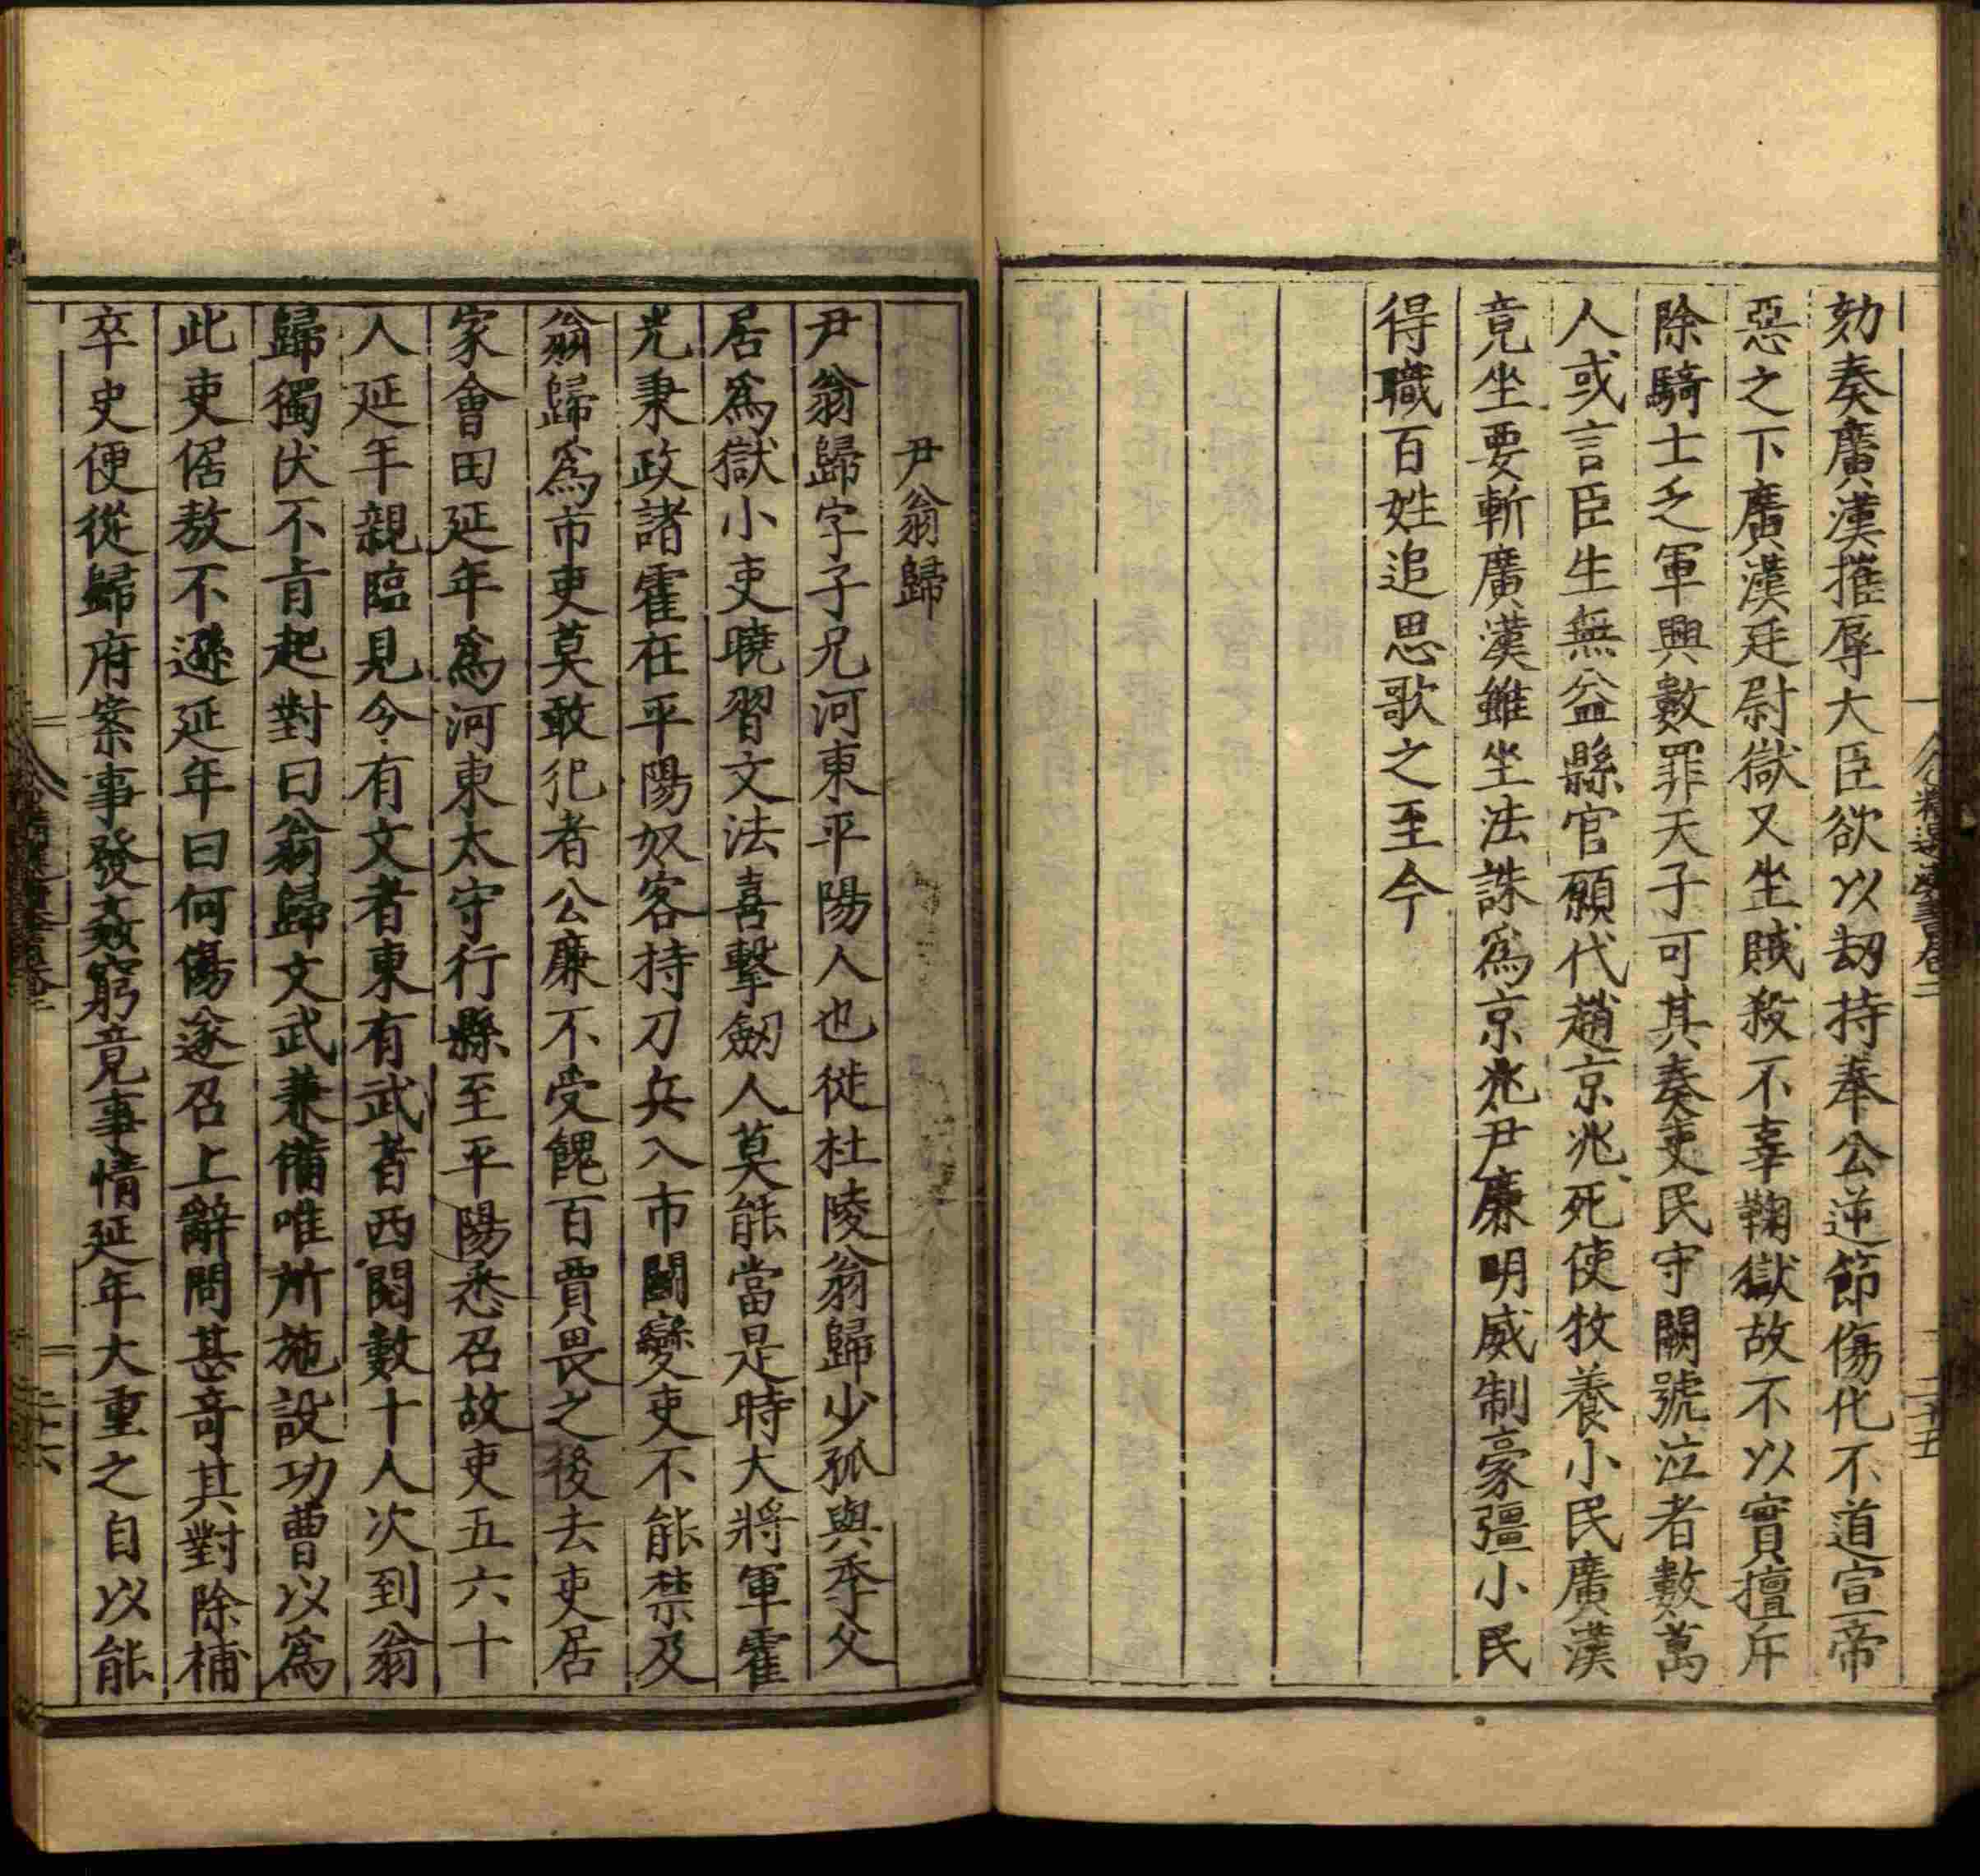 劾奏廣漢摧辱大臣欲以劫持奉公逆節傷化不道宣帝
惡之下廣漢廷尉獄又坐賊殺不辜鞠獄故不以實擅斥
除騎士乏軍興數罪天子可其奏吏民守闕號泣者數萬
人或言臣生無益縣官願代趙京兆死使牧養小民廣漢
竟坐要斬廣漢雖坐法誅爲京兆尹廉明威制豪彊小民
得職百姓追思歌之至今
精選漢書卷二
二十五
尹翁歸
尹翁歸字子兄河東平陽人也徙杜陵翁歸少孤與季父
居爲獄小吏曉習文法喜擊劒人莫能當是時大將軍霍
光秉政諸霍在平陽奴客持刀兵入市鬭變吏不能禁及
翁歸爲市吏莫敢犯者公廉不受餽百賈畏之後去吏居
家會田延年爲河東太守行縣至平陽悉召故吏五六十
人延年親臨見令有文者東有武者西閱數十人次到翁
歸獨伏不肯起對曰翁歸文武兼備唯所施設功曹以爲
此吏倨敖不遜延年曰何傷遂召上辭問甚奇其對除補
卒史便從歸府案事發姦窮竟事情延年大重之自以能
二十六